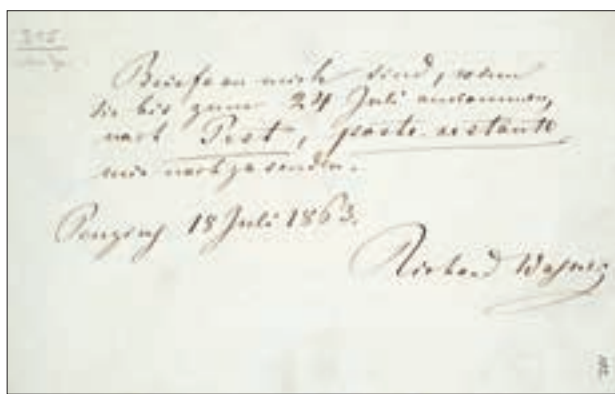 Briefe an mich sind, wenn
sie bis zum 24 Juli ankommen,
nach Pest, poste restante
mir nachzusenden.
Penzing 18 Juli 1863.
Richard Wagner